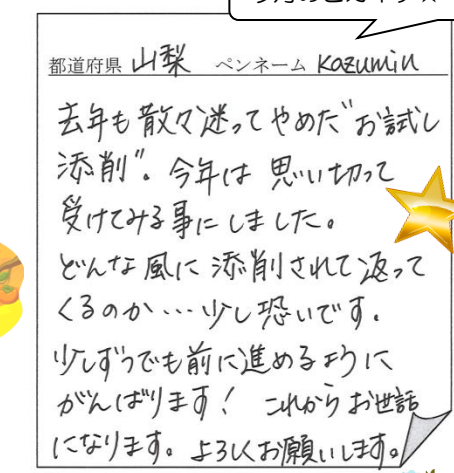 都道府県 山梨 ペンネーム Kazumin
去年も散々迷ってやめた"お試し
添削"。今年は思い切って
受けてみる事にしました。
どんな風に添削されて返って
くるのか…少し恐いです。
少しずつでも前に進めるように
がんばります！これからお世話
になります。よろしくお願いします。